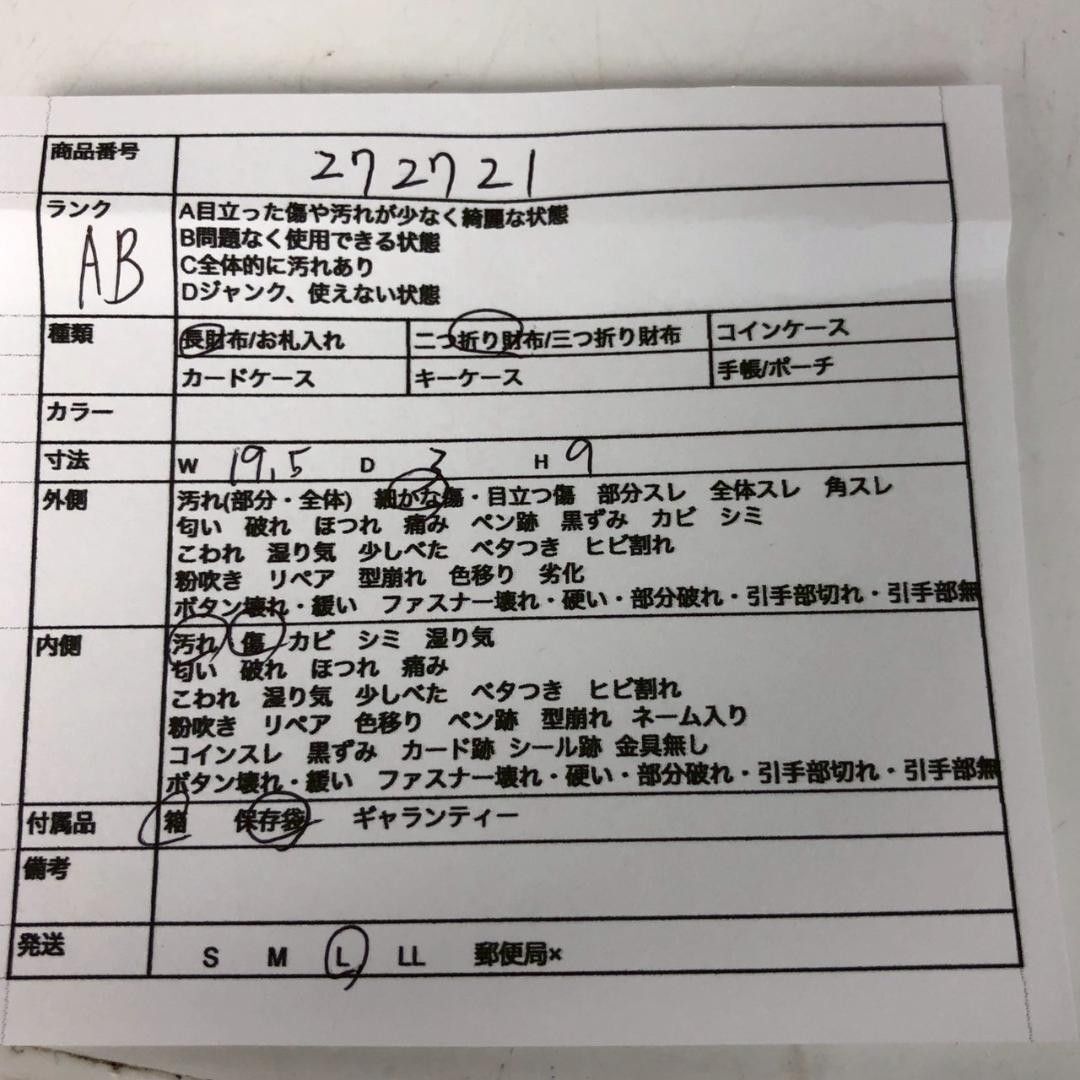 商品番号 272721
ランク AB A目立った傷や汚れが少なく綺麗な状態
B問題なく使用できる状態
C全体的に汚れあり
Dジャンク、使えない状態
種類 長財布/お札入れ 二つ折り財布/三つ折り財布 コインケース
カードケース キーケース 手帳/ポーチ
カラー
寸法 W 19,5 D 3 H 9
外側 汚れ(部分・全体) 細かな傷・目立つ傷 部分スレ 全体スレ 角スレ
匂い 破れ ほつれ 痛み ペン跡 黒ずみ カビ シミ
こわれ 湿り気 少しべた ベタつき ヒビ割れ
粉吹き リペア 型崩れ 色移り 劣化
ボタン壊れ・緩い ファスナー壊れ・硬い・部分破れ・引手部切れ・引手部無
内側 汚れ・傷・カビ シミ 湿り気
匂い 破れ ほつれ 痛み
こわれ 湿り気 少しべた ベタつき ヒビ割れ
粉吹き リペア 色移り ペン跡 型崩れ ネーム入り
コインスレ 黒ずみ カード跡 シール跡 金具無し
ボタン壊れ・緩い ファスナー壊れ・硬い・部分破れ・引手部切れ・引手部無
付属品 箱 保存袋 ギャランティー
備考
発送 S M L LL 郵便局×